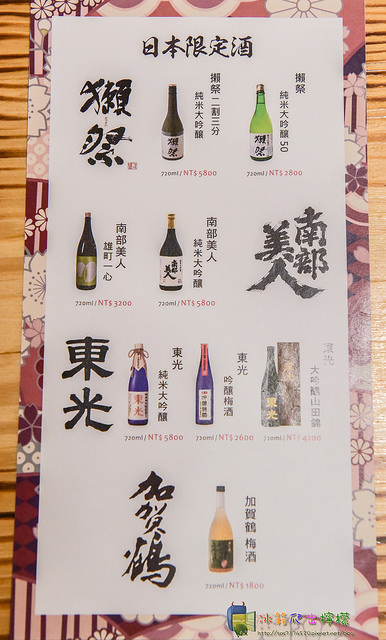 日本限定酒
獺祭
獺祭 二割三分
純米大吟醸
720ml / NT$ 5800
獺祭
純米大吟醸 50
720ml / NT$ 2800
南部美人
雄町 一心
720ml / NT$ 3200
南部美人
純米大吟醸
720ml / NT$ 5800
南部美人
東光
東光
純米大吟醸
720ml / NT$ 5800
東光
吟醸梅酒
720ml / NT$ 2600
東光
大吟醸山田錦
720ml / NT$ 4200
加賀鶴
加賀鶴 梅酒
720ml / NT$ 1800
冰箱爬出檸檬